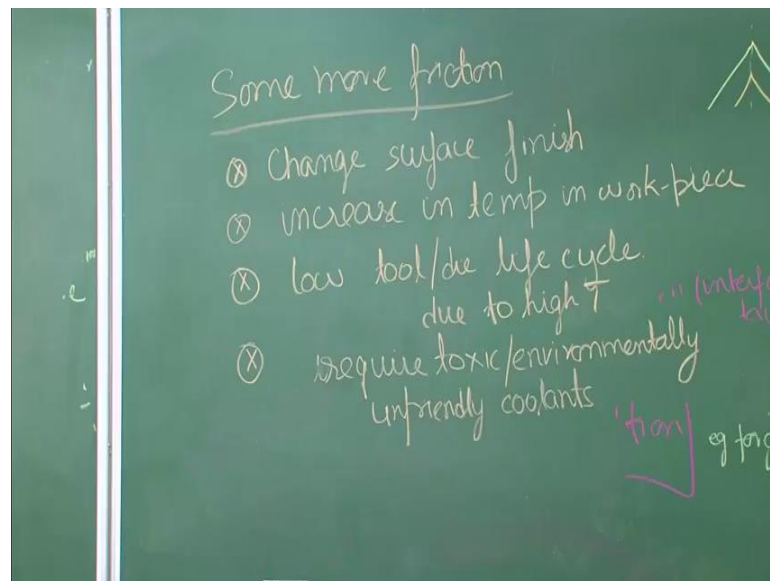 Some more friction
ⓧ Change surface finish
ⓧ increase in temp in work-piece
ⓧ low tool/die life cycle.
due to high T
ⓧ require toxic/environmentally
unfriendly coolants
'tion
eg